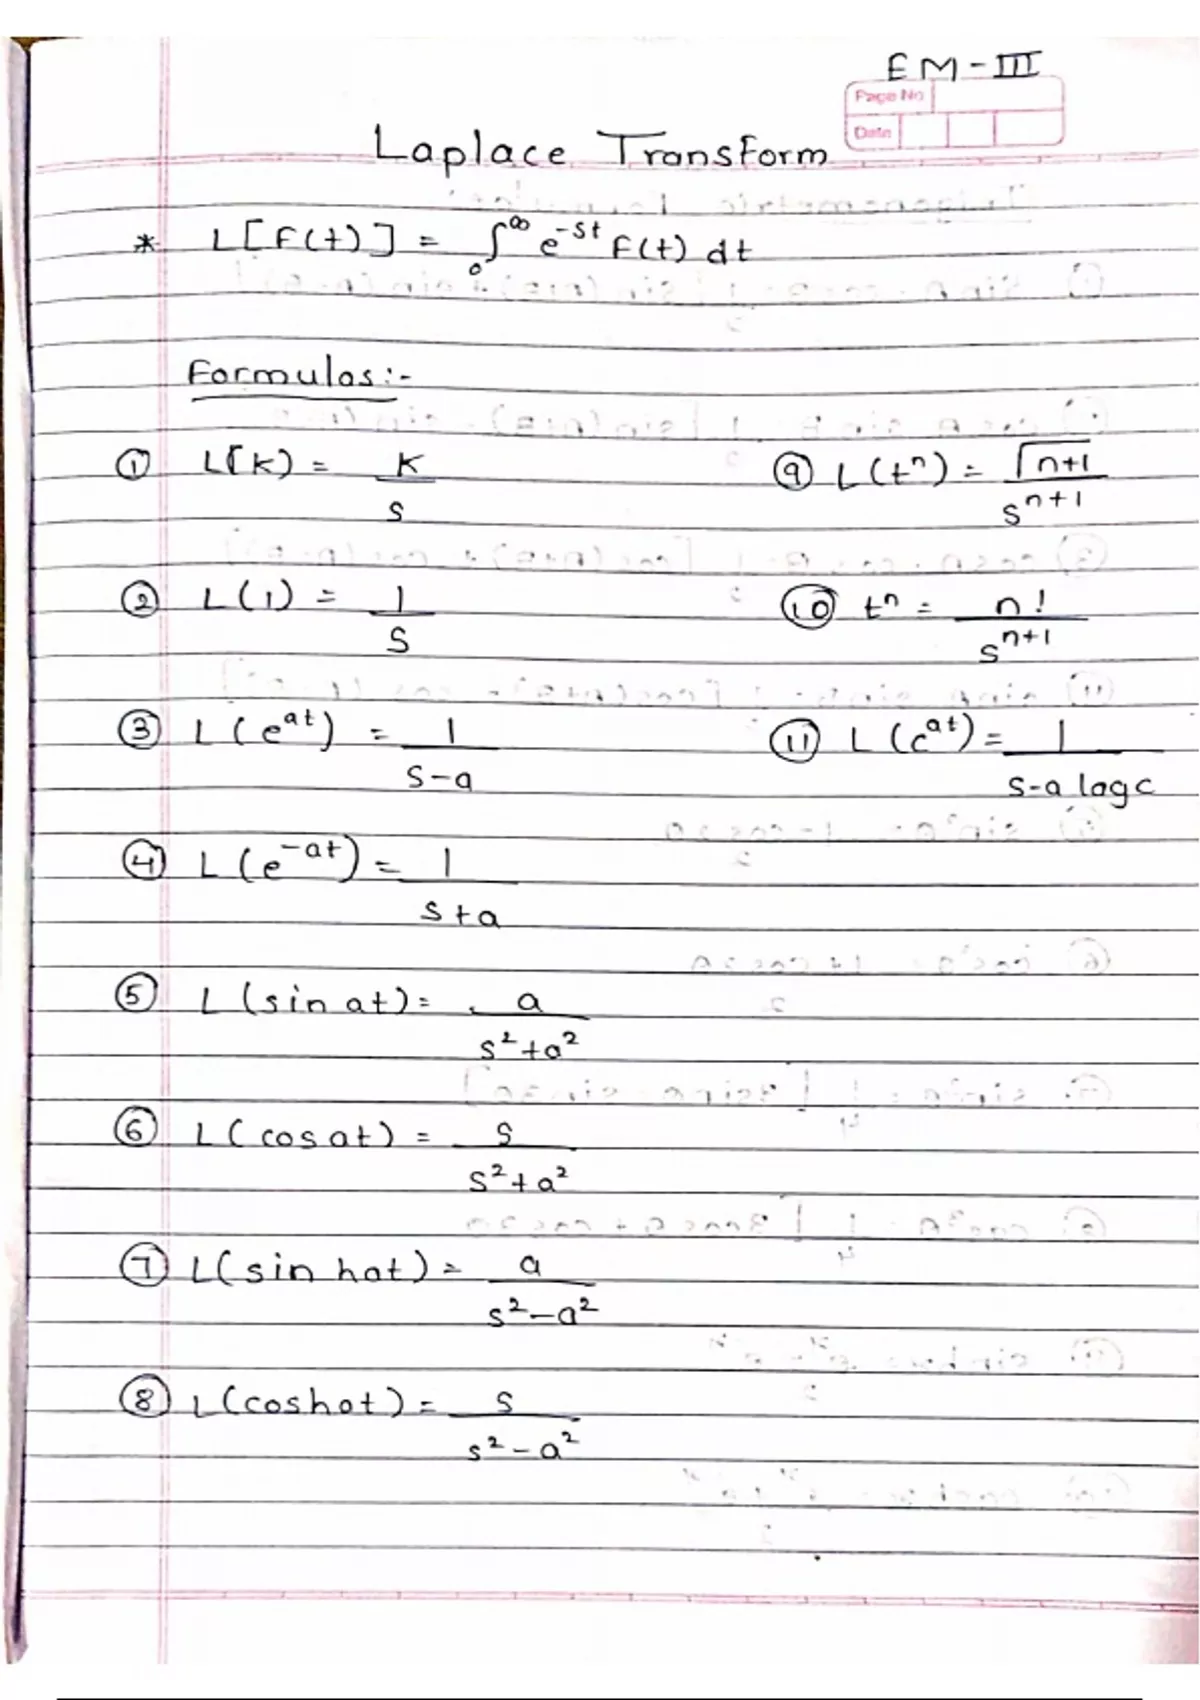 EM-III
Page No
Date
Laplace Transform
* L[F(t)] = ∫₀^∞ e^-st F(t) dt
Formulas:-
① L[K) = K/s
② L(1) = 1/s
③ L(e^at) = 1/s-a
④ L(e^-at) = 1/s+a
⑤ L(sin at) = a/s²+a²
⑥ L(cosat) = s/s²+a²
⑦ L(sin hat) = a/s²-a²
⑧ L(coshat) = s/s²-a²
⑨ L(t^n) = Γn+1/s^n+1
⑩ t^n = n!/s^n+1
⑪ L(c^at) = 1/s-a logc